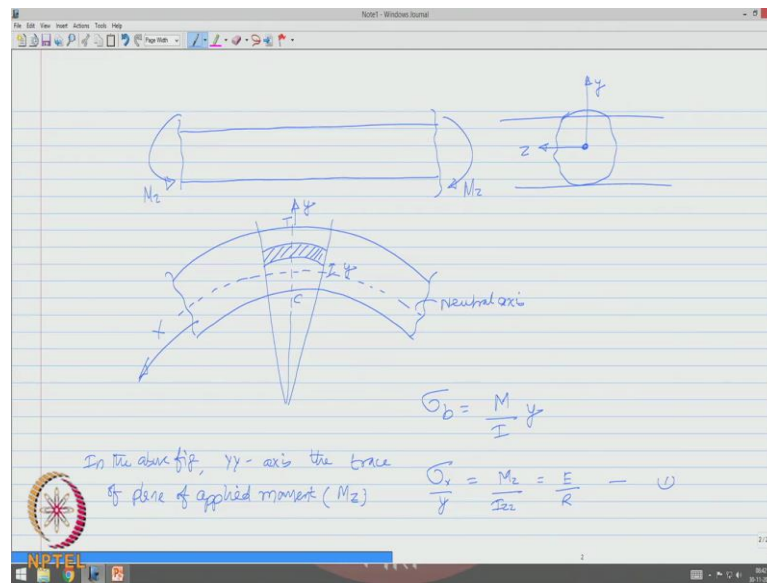 Note1 - Windows Journal
File Edit View Insert Actions Tools Help
Page Width
y
z
Mz
Mz
y
T
y
C
Neutral axis
x
σb = M/I y
In the above fig, yy-axis the trace
of plane of applied moment (Mz)
σx/y = Mz/Izz = E/R — (1)
NPTEL
2